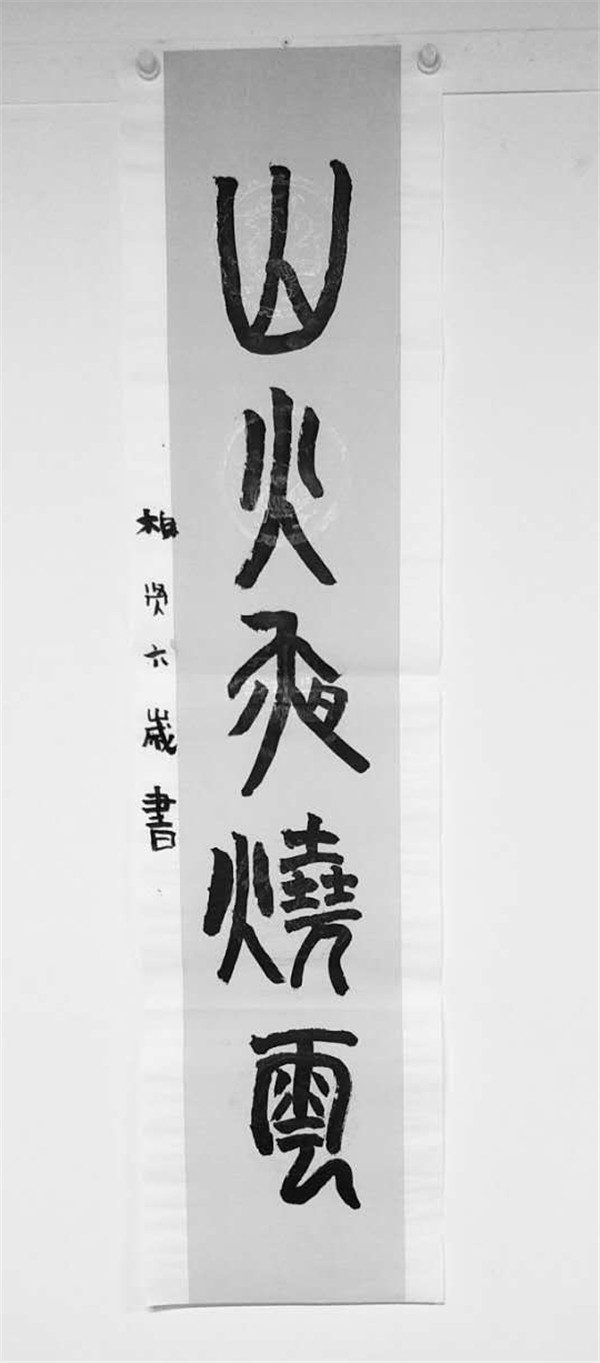 山火夜燒雲
相贤六歲書